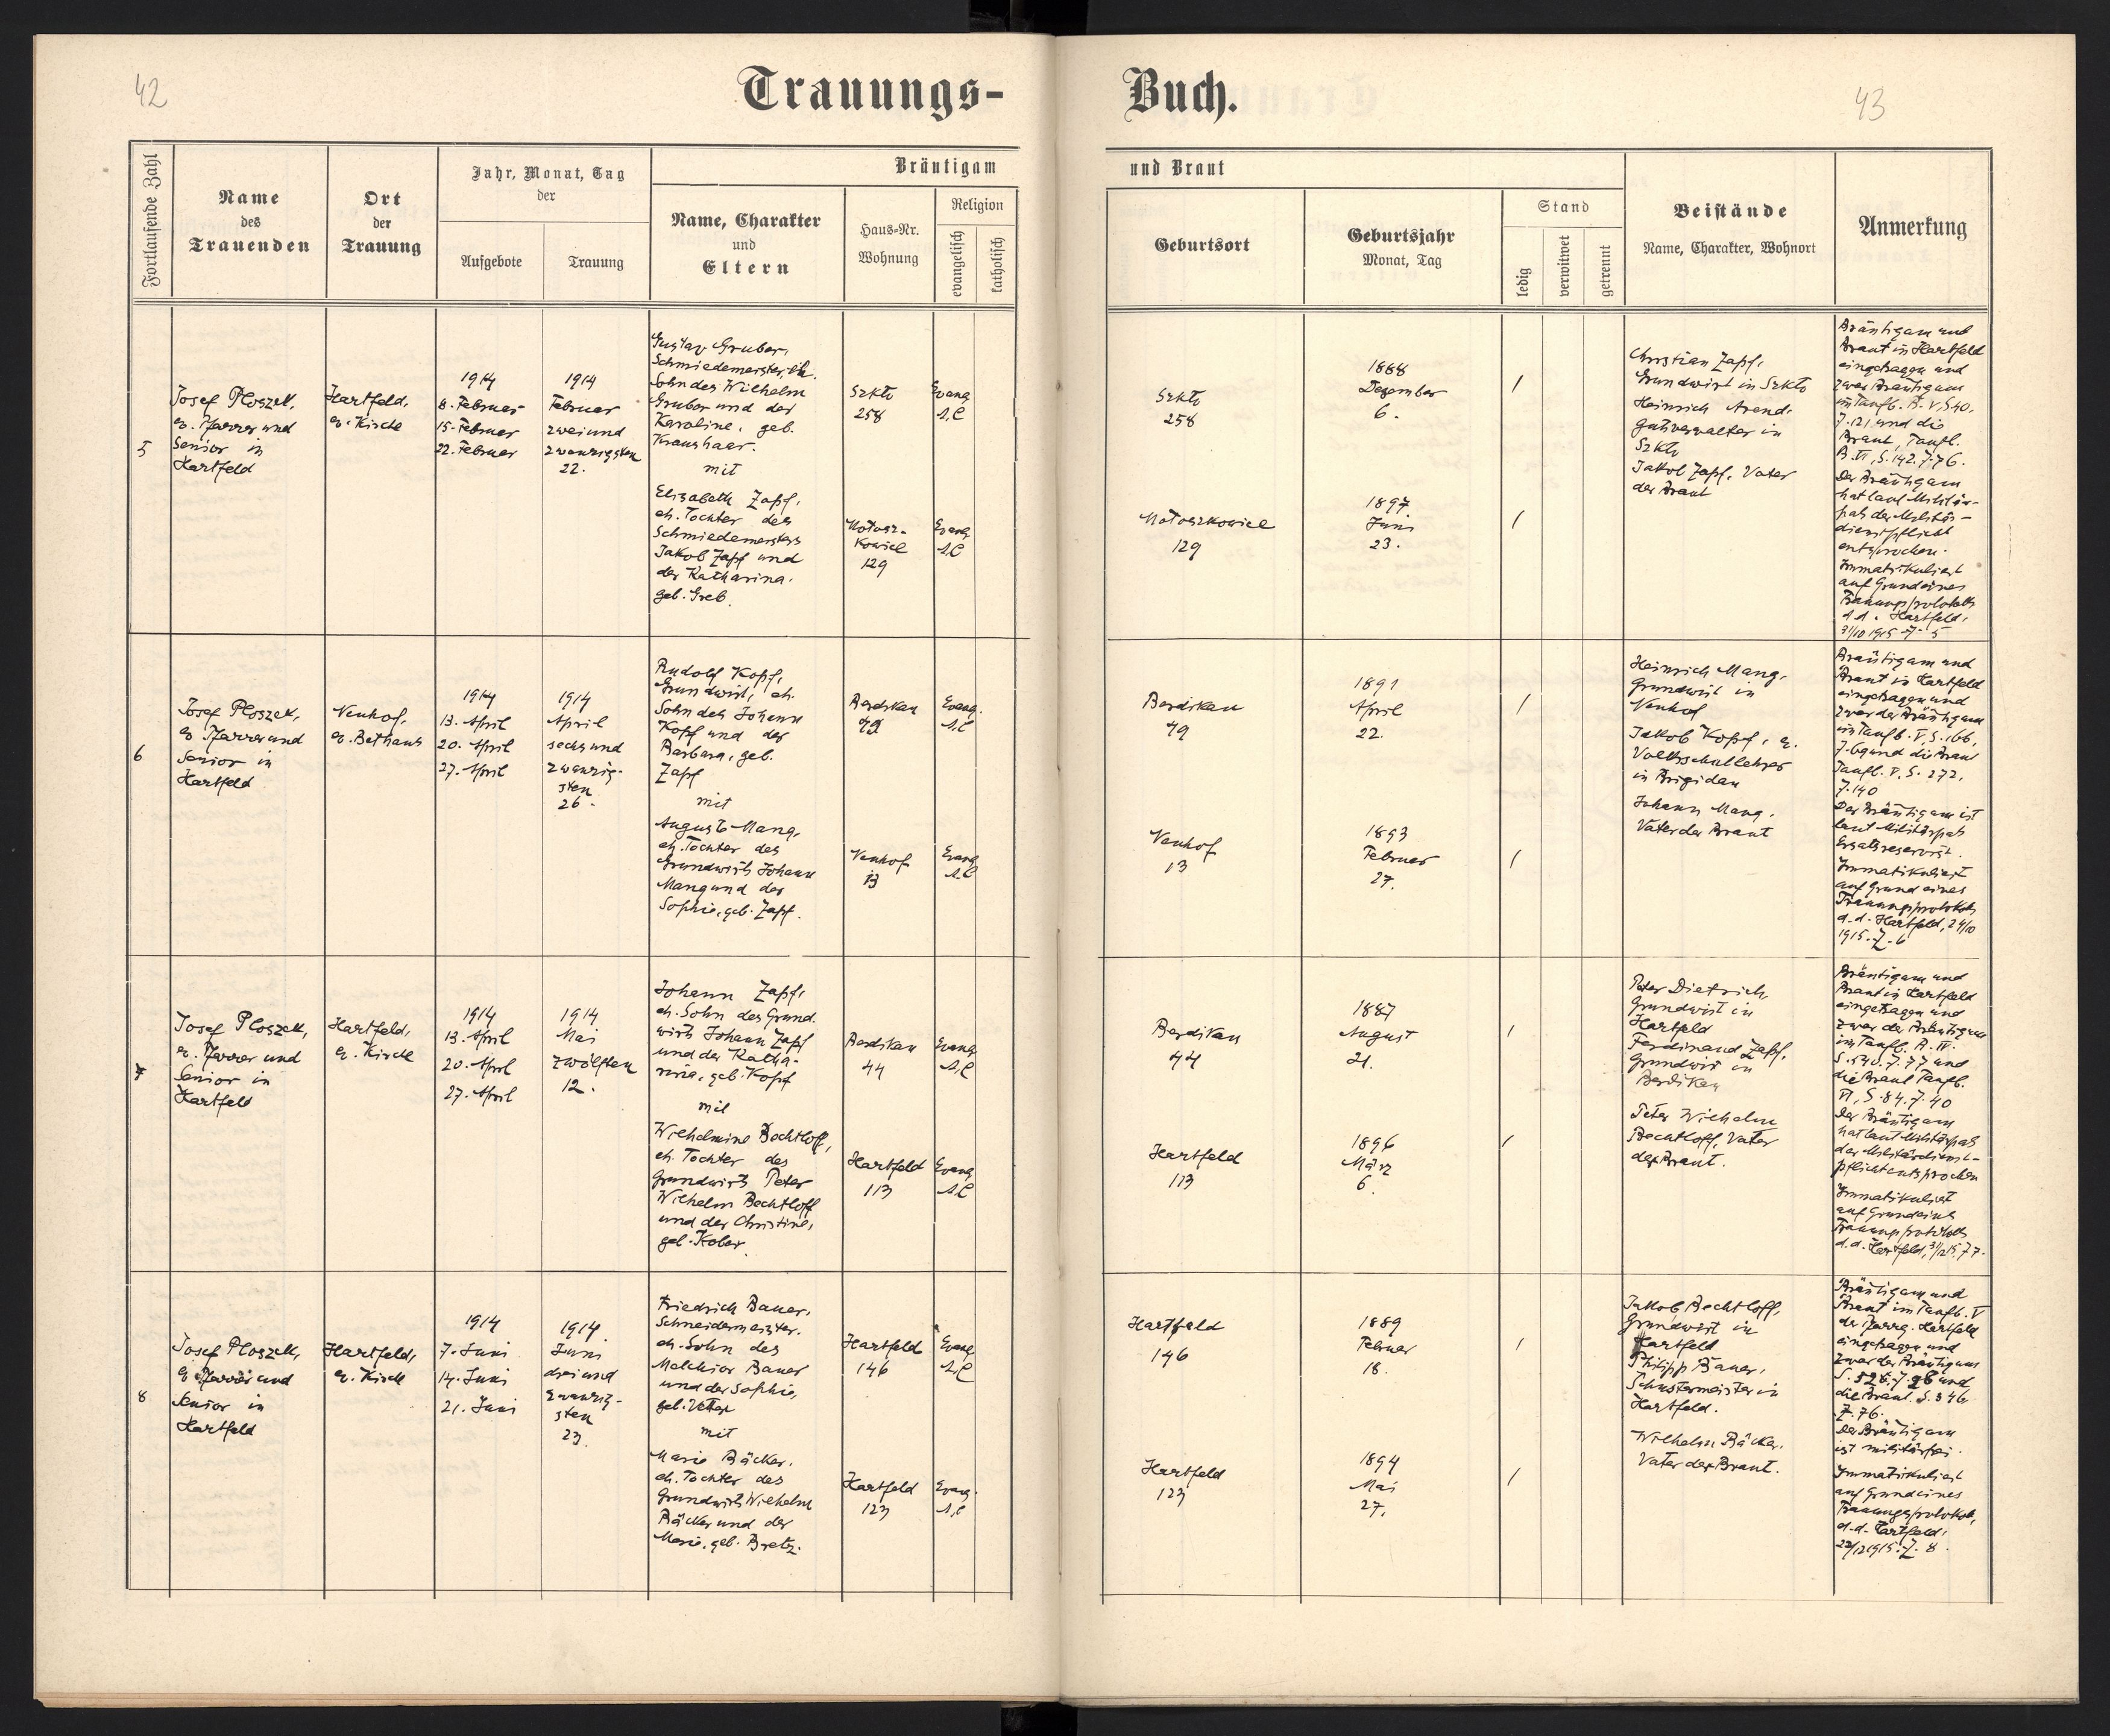 42
Trauungs-
Buch.
43
Fortlaufende Zahl
Name
des
Trauenden
Ort
der
Trauung
Jahr, Monat, Tag
der
Aufgebote
Trauung
Bräutigam
Name, Charakter
und
Eltern
Haus-Nr.
Wohnung
Religion
evangelisch
katholisch
und Braut
Geburtsort
Geburtsjahr
Monat, Tag
Stand
ledig
verwitwet
getrennt
Beistände
Name, Charakter, Wohnort
Anmerkung
5
Josef Ploszek,
ev. Pfarrer und
Senior in
Hartfeld
Hartfeld,
ev. Kirche
1914
8. Februar
15. Februar
22. Februar
1914
Februar
zweiund
zwanzigsten
22.
Gustav Gruber,
Schmiedemeister, eh.
Sohn des Wilhelm
Gruber und der
Karoline, geb.
Kraushaar.
mit
Elisabeth Zapf,
eh. Tochter des
Schmiedemeisters
Jakob Zapf und
der Katharina,
geb. Greb.
Szkło
258
Mołosz-
kowice
129
Evang.
A.C
Evang
A.C
Szkło
258
Mołoszkowice
129
1888
Dezember
6.
1897
Juni
23.
/
/
Christian Zapf,
Grundwirt in Szkło
Heinrich Arend,
Gutsverwalter in
Szkło
Jakob Zapf, Vater
der Braut
Bräutigam und
Braut in Hartfeld
eingetragen und
zwar Bräutigam
im Taufb. B. V, S 40,
Z. 121, und die
Braut, Taufb.
B. VI, S. 142. Z. 76.
Der Bräutigam
hat laut Militär-
paß der Militär-
dienstpflicht
entsprochen.
Immatrikuliert
auf Grund eines
Trauungsprotokolls
d.d. Hartfeld,
31/10 1915 Z. 5
6
Josef Ploszek,
ev. Pfarrer und
Senior in
Hartfeld
Neuhof,
ev. Bethaus
1914
13. April
20. April
27. April
1914
April
sechsund
zwanzig-
sten
26.
Rudolf Kopf,
Grundwirt, eh.
Sohn des Johann
Kopf und der
Barbara, geb.
Zapf
mit
Auguste Mang,
eh. Tochter des
Grundwirts Johann
Mang und der
Sophie, geb. Zapf.
Berdikau
49
Neuhof
13
Evang.
A.C
Evang
A.C
Berdikau
49
Neuhof
13
1891
April
22.
1893
Februar
27.
/
/
Heinrich Mang,
Grundwirt in
Neuhof
Jakob Kopf, ev.
Volksschullehrer
in Brigidau
Johann Mang,
Vater der Braut
Bräutigam und
Braut in Hartfeld
eingetragen und
zwar der Bräutigam
im Taufb. V, S. 166,
Z. 69 und die Braut
Taufb. V, S. 272,
Z. 140
Der Bräutigam ist
laut Militärpaß
Ersatzreservist.
Immatrikuliert
auf Grund eines
Trauungsprotokolls
d.d. Hartfeld, 24/10
1915. Z. 6
7
Josef Ploszek,
ev. Pfarrer und
Senior in
Hartfeld
Hartfeld,
ev. Kirche
1914
13. April
20. April
27. April
1914
Mai
zwölften
12.
Johann Zapf,
eh. Sohn des Grund-
wirts Johann Zapf
und der Katha-
rina, geb. Kopf
mit
Wilhelmine Bechtloff,
eh. Tochter des
Grundwirts Peter
Wilhelm Bechtloff
und der Christine,
geb. Kober.
Berdikau
44
Hartfeld
113
Evang
A.C
Evang
A.C
Berdikau
44
Hartfeld
113
1887
August
21.
1896
März
6.
/
/
Peter Dietrich,
Grundwirt in
Hartfeld
Ferdinand Zapf,
Grundwirt in
Berdikau
Peter Wilhelm
Bechtloff, Vater
der Braut.
Bräutigam und
Braut in Hartfeld
eingetragen und
zwar der Bräutigam
im Taufb. B. IV.
S. 540. Z. 77 und
die Braut Taufb.
VI, S. 84. Z. 40
Der Bräutigam
hat laut Militärpaß
der Militärdienst-
pflicht entsprochen
Immatrikuliert
auf Grund eines
Trauungsprotokolls
d.d. Hartfeld,
8
Josef Ploszek,
ev. Pfarrer und
Senior in
Hartfeld
Hartfeld,
ev. Kirche
1914
7. Juni
14. Juni
21. Juni
1914.
Juni
dreiund
zwanzig-
sten
23.
Friedrich Bauer,
Schneidermeister,
eh. Sohn des
Melchior Bauer
und der Sophie,
geb. Vetter
mit
Marie Bäcker,
eh. Tochter des
Grundwirts Wilhelm
Bäcker und der
Marie, geb. Bretz.
Hartfeld
146
Hartfeld
123
Evang
A.C
Evang.
A.C
Hartfeld
146
Hartfeld
123
1889
Februar
18.
1894
Mai
27.
/
/
Jakob Bechtloff,
Grundwirt in
Hartfeld
Philipp Bauer,
Schustermeister in
Hartfeld.
Wilhelm Bäcker,
Vater der Braut.
Bräutigam und
Braut im Taufb. V
der Pfarrg. Hartfeld
eingetragen und
zwar der Bräutigam
S. 528. Z. 28 und
die Braut. S. 346
Z. 76.
Der Bräutigam
ist militärfrei.
Immatrikuliert
auf Grund eines
Trauungsprotokolls,
d.d. Hartfeld,
22/12 1915. Z. 8.